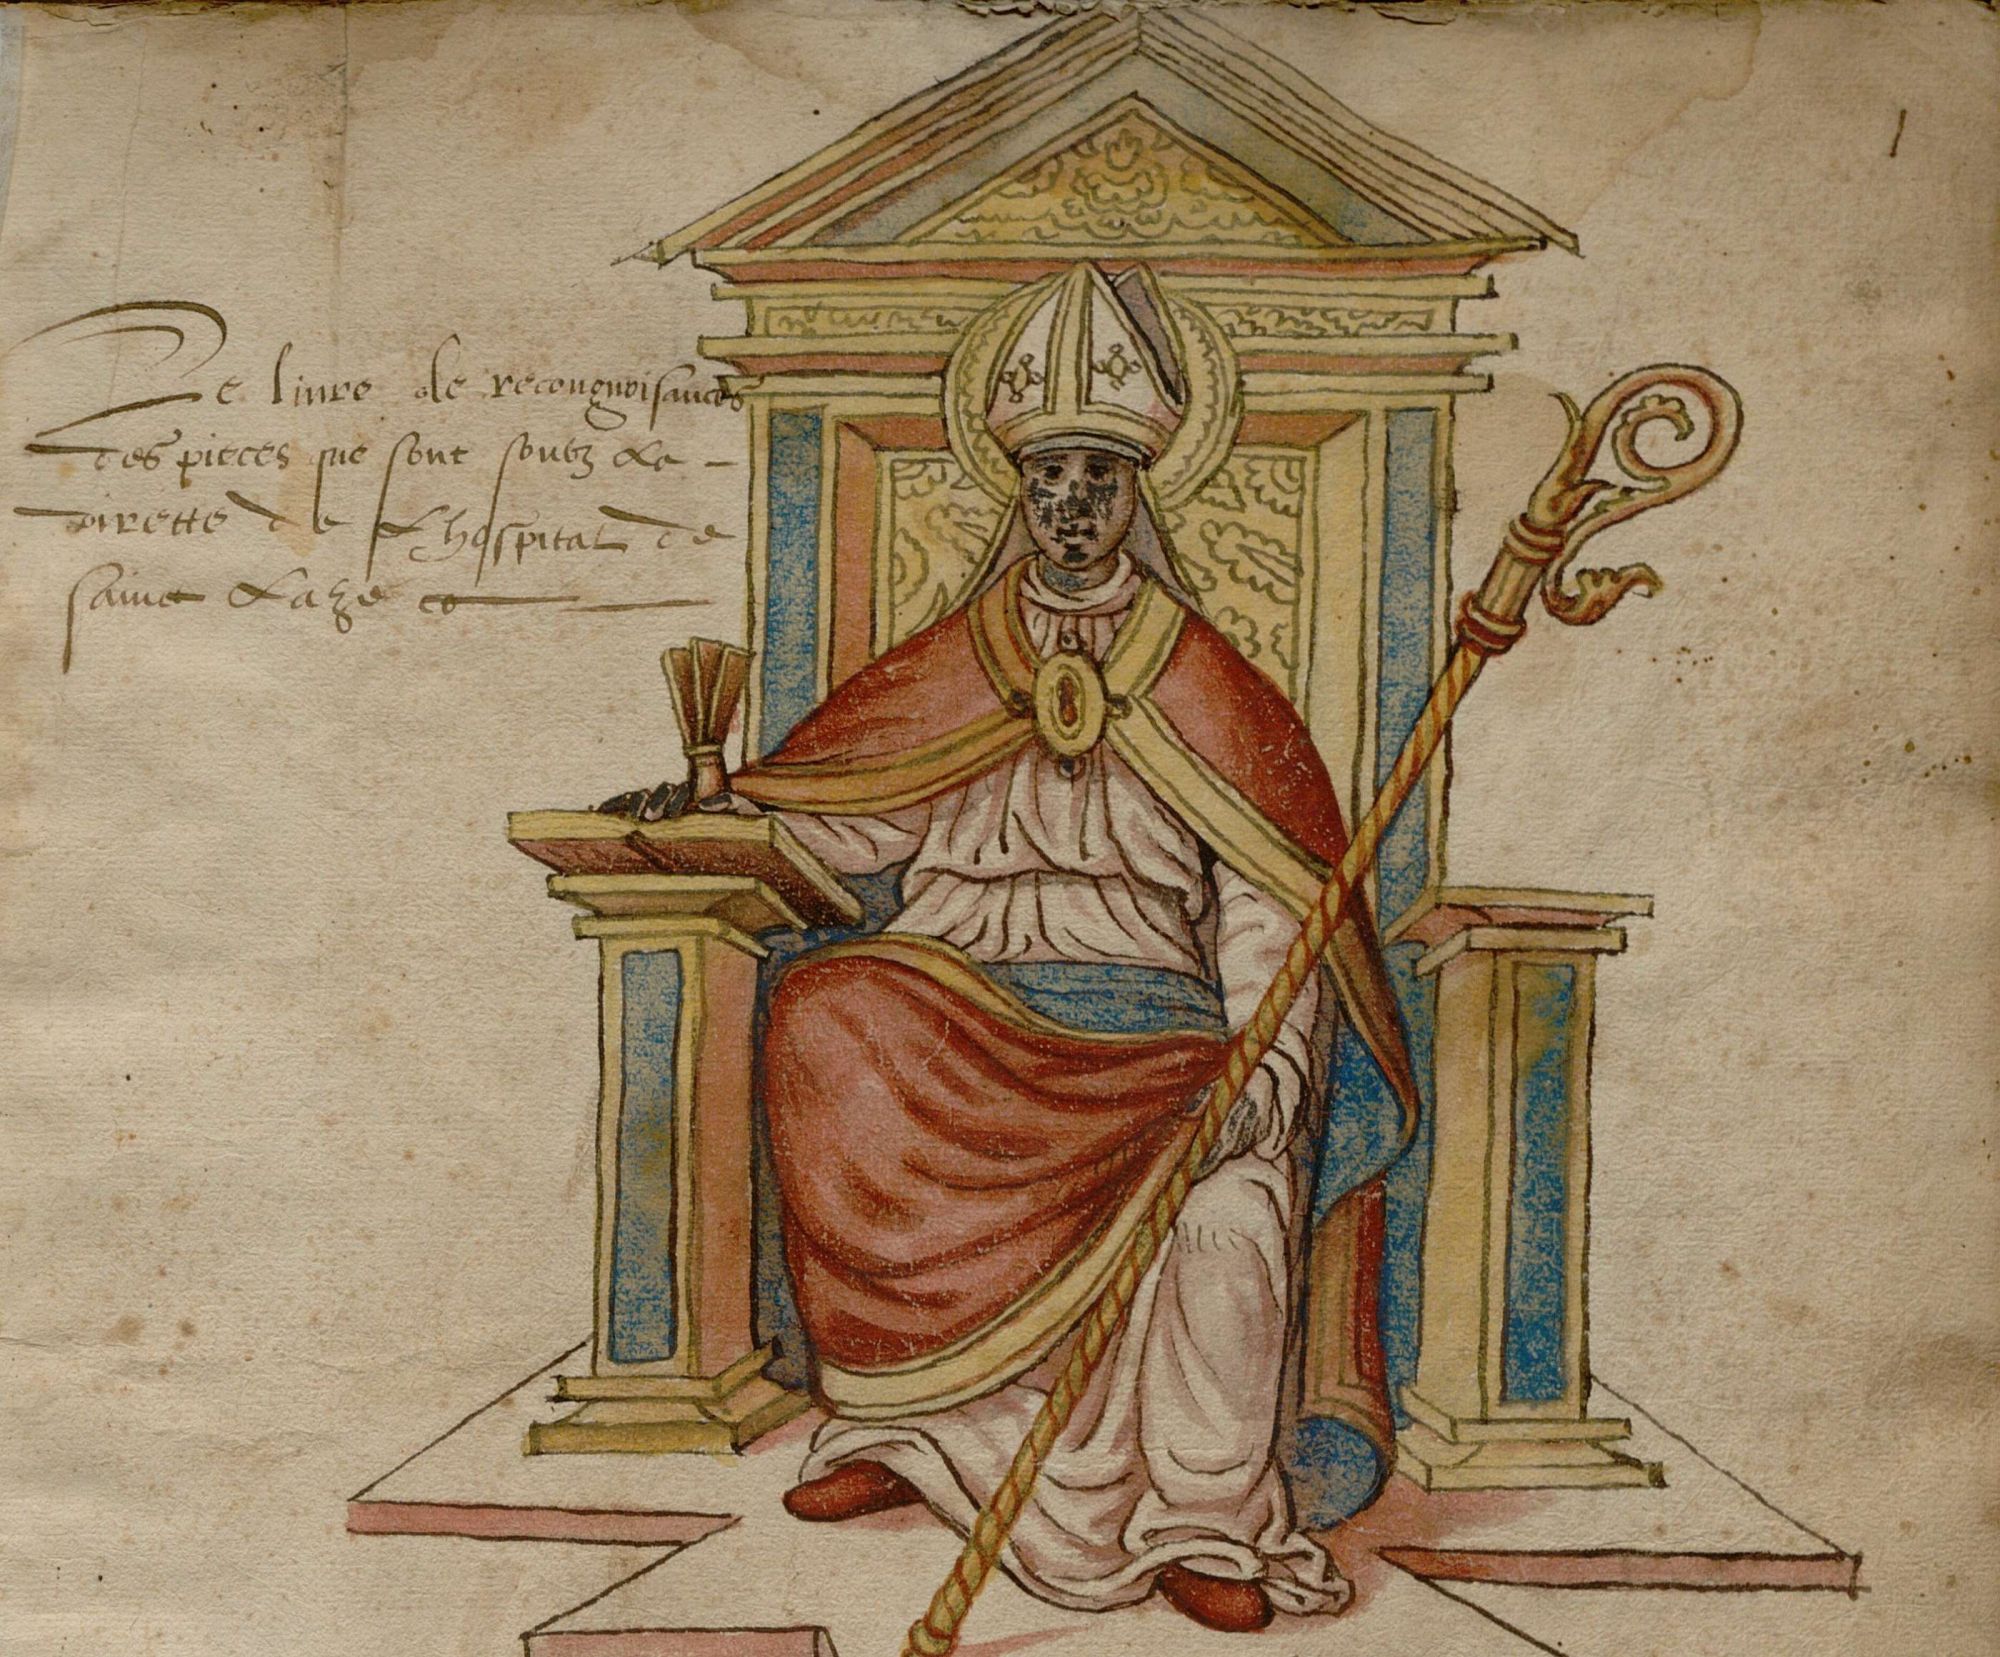 Le livre de recongnoisances
des pieces que sont soutz la
dirette de l'hospital de
sainct Lazé
1